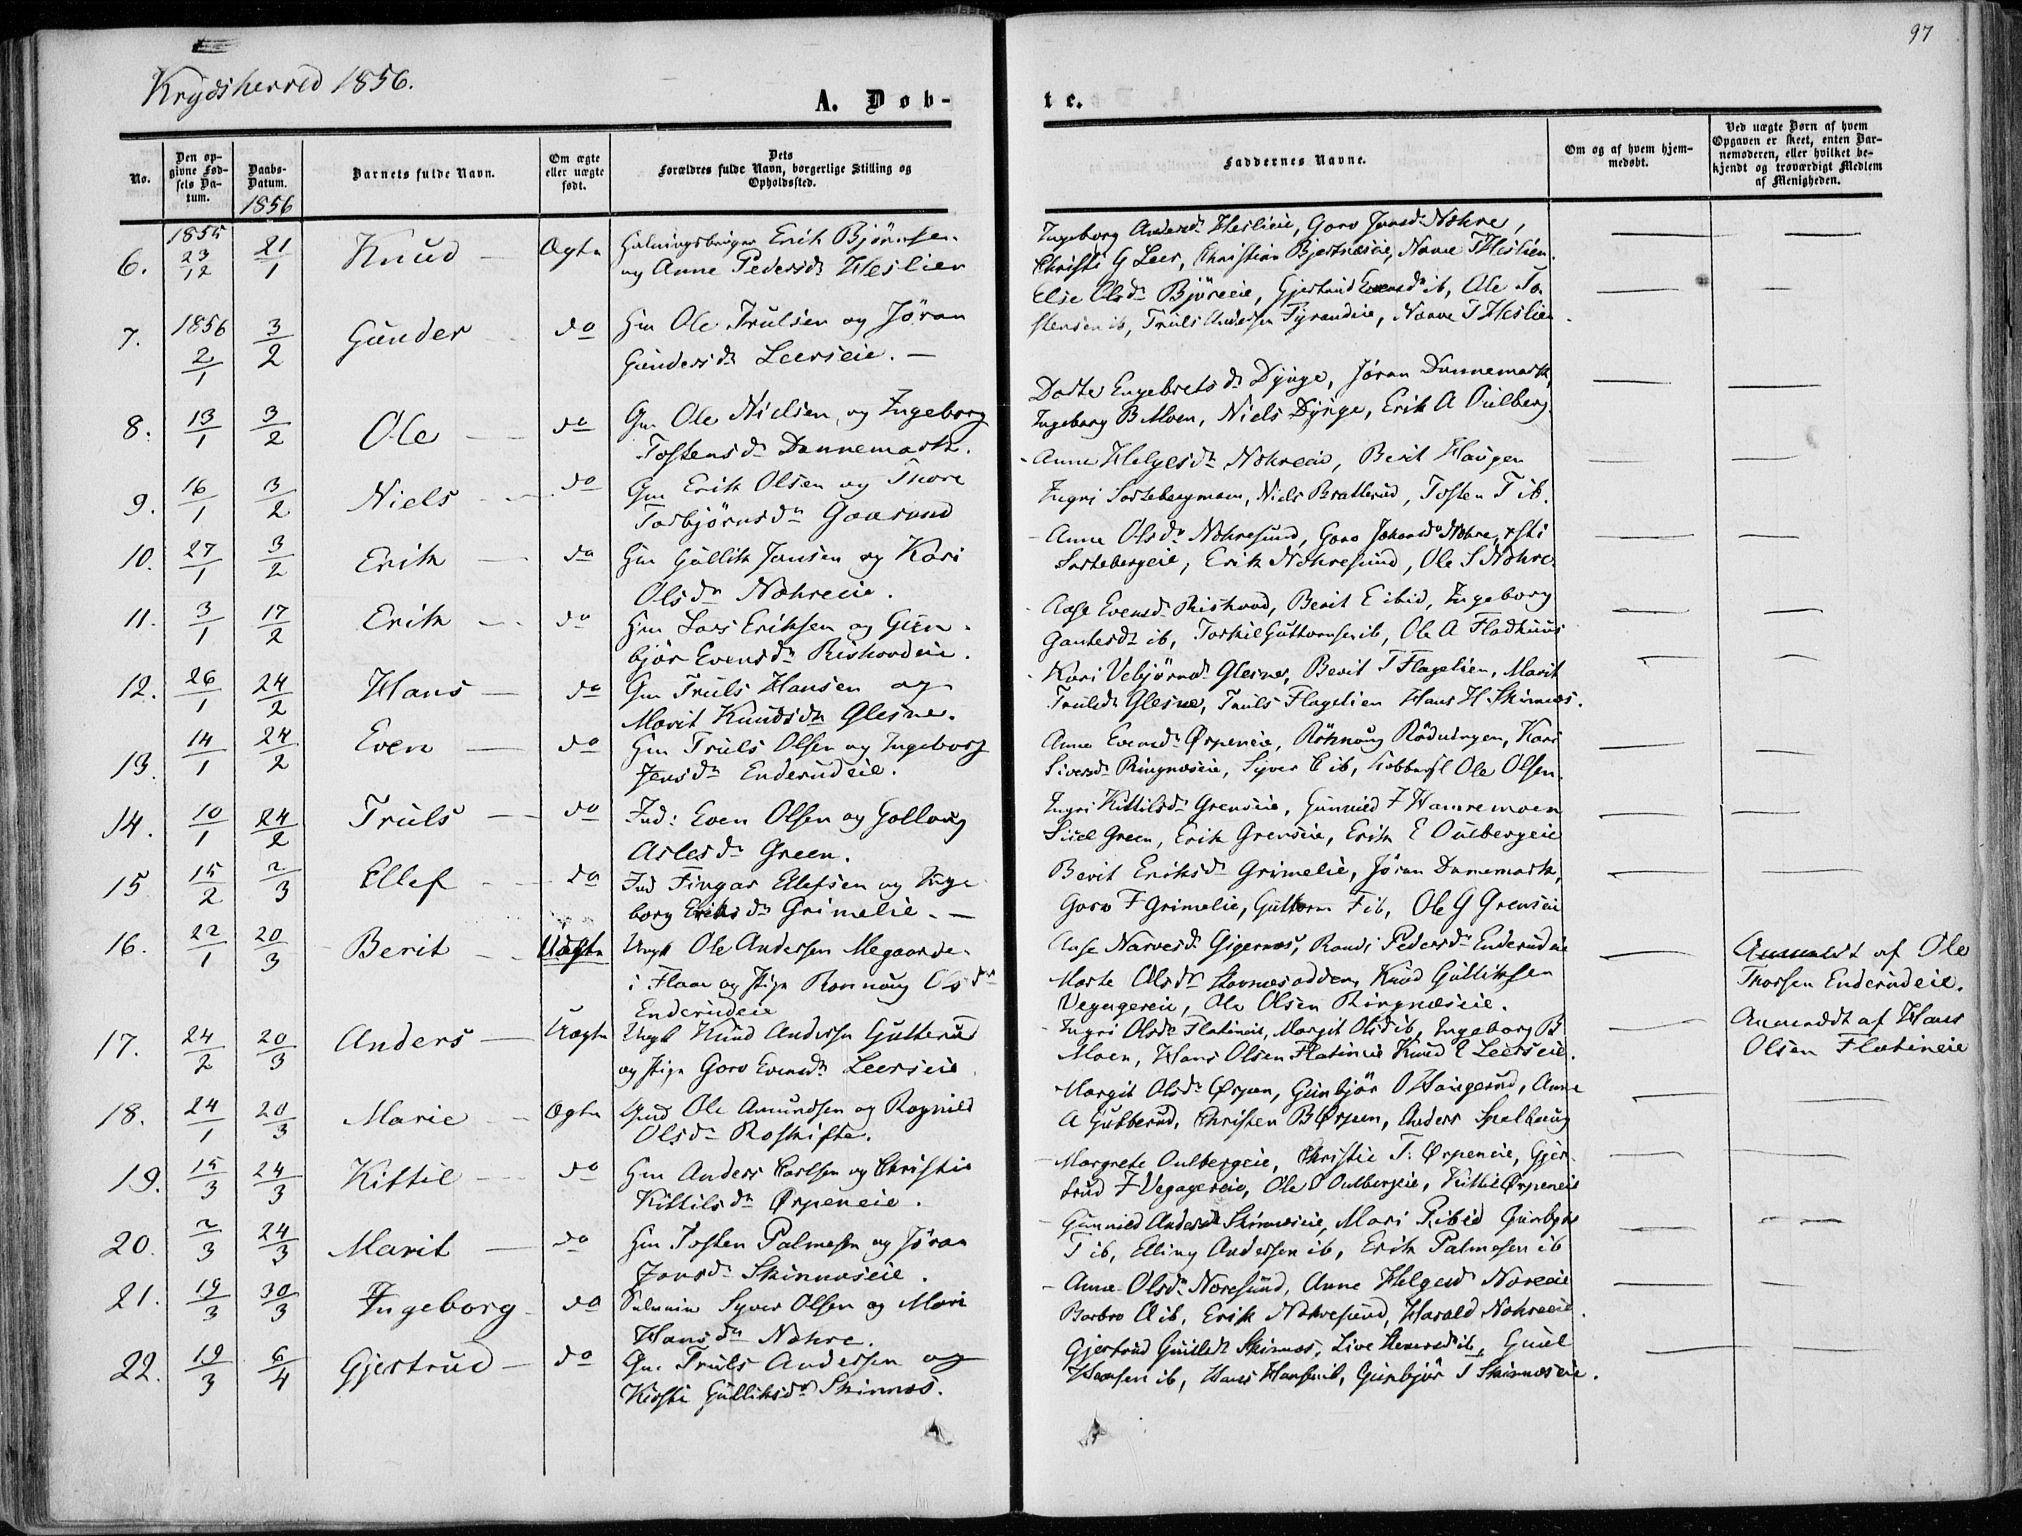 97
Krydsherred 1856.
A. Døb-
te.
No.
Den opgivne Fødsels Datum.
Daabs-Datum.
1856
Barnets fulde Navn.
Om ægte eller uægte født.
Dets Forældres fulde Navn, borgerlige Stilling og Opholdssted.
Faddernes Navne.
Om og af hvem hjemmedøbt.
Ved uægte Børn af hvem Opgaven er skeet, enten Barnemoderen, eller hvilket bekjendt og troværdigt Medlem af Menigheden.
6. 1855 23/12 21/1 Knud — Ægte Erik Bjørnsen
og Anne Pedersdr Heslien
Ingeborg Andersdr Heslieie, Goro Jonsdr Nohre,
Christi G Leer, Christian Bjertnæseie, Narve T Heslien.
7. 1856 2/1 3/2 Gunder do Hm Ole Trulsen og Jøran
Gundersdr Leerseie. —
Else Olsdr Bjøreeie, Gjertrud Evensdr ib, Ole To-
stensen ib, Truls Andersen, Narve T Heslien
8. 13/1 3/2 Ole — do Gm Ole Nielsen og Ingeborg
Tostensdr Dannemark.
Dorte Engebretsdr Dynge, Jøran Dannemark,
Ingeborg B Moen, Niels Dynge, Erik A Oulberg
9. 16/1 3/2 Niels do Gm Erik Olsen og Thore
Torbjørnsdr Gaasrud
Anne Helgesdr Nohreeie, Berit Haugen
Ingri, Niels Bratterud, Tosten T ib.
10. 27/1 3/2 Erik — do Hm Gullik Jansen og Kari
Olsdr Nohreeie.
Anne Olsdr Nohresund, Goro Nohre,
Sortebergeie, Erik Nohresund, Ole S Nohre
11. 3/1 17/2 Erik do Hm Lars Eriksen og Gun-
bjør Evensdr Riskoodeie.
Aase Evensdr, Berit E ibid, Ingeborg
ib, ib, Ole A Flodhuus
12. 26/1 24/2 Hans — do Gm Truls Hansen og
Marit Knudsdr Glesne.
Kari Vebjørnsdr Glesne, Berit T Flagelien, Marit
Trulsdr Glesne, Truls Flagelien Hans H. Skinnes.
13. 14/1 24/2 Even — do Hm Truls Olsen og Ingeborg
Jensdr Enderudeie.
Anne Evensdr Ørpeneie, Rødningen, Kari
Siversdr Ringnæseie, Syver E ib, Ole Olsen.
14. 10/1 24/2 Truls — do Ind: Even Olsen og Gollaug
Aslesdr Green.
Ingri Kittilsdr Grenseie, Gunnild F Hamremoen
Siel Green, Erik Grenseie, Erik E Oulbergeie
15 15/2 2/3 Ellef — do Ind Fingar Ellefsen og Inge
borg Eriksdr Grimelie. —
Berit Eriksdr Grimelie, Jøran Dannemark,
Goro F Grimelie, Guttorm F ib, Ole G Grenseie
16. 22/1 20/3 Berit Uægte Ungk Ole Andersen Megaarden
i Flaae og Pige Rønnaug Olsdr
Enderudeie
Aase Narvesdr, Randi Pedersdr Enderudeie
Marte Olsdr, Knud Gulliksen
Ole Olsen Ringnæseie.
Anmeldt af Ole
Thorsen Enderudeie.
17. 24/2 20/3 Anders — Uægte Ungk Knud Andersen Gutterud
og Pige Goro Evensdr Leerseie
Ingri Olsdr Flatineie, Margit Olsdr ib, Ingeborg B
Moen, Hans Olsen Flatineie Knud E Leerseie.
Anmeldt af Hans
Olsen Flatineie
18. 24/1 20/3 Marie Ægte Ole Amundsen og Ragnild
Olsdr Roskifte.
Margit Olsdr Ørpen, Gunbjør O Haugerud, Anne
A Gutterud, Christen B Ørpen, Anders
19. 15/3 24/3 Kittil do Hm Anders Carlsen og Christie
Kittilsdr Ørpeneie.
Margrete Oulbergeie, Christie T. Ørpeneie, Gjer-
trud F, Ole O Oulbergeie, Kittil Ørpeneie
20. 2/3 24/3 Marit — do Hm Tosten Palmesen og Jøran
Jonsdr Skinneseie.
Gunnild Andersdr Skinneseie, Mari P ibid Gunbjør
T ib, Elling Andersen ib, Erik Palmesen ib
21. 19/3 30/3 Ingeborg do Syver Olsen og Mari
Hansdr Nohre.
Anne Olsdr Noresund, Anne Helgesdr Noreeie
Barbro A ib, Erik Nohresund, Harald Nohreeie.
22. 19/3 6/4 Gjertrud — do Gm Truls Andersen og
Kirsti Gulliksdr Skinnes.
Gjertrud Skinnes, Live ib, Guul
Hansen ib, Hans Hansen ib, Gunbjør S Skinneseie.